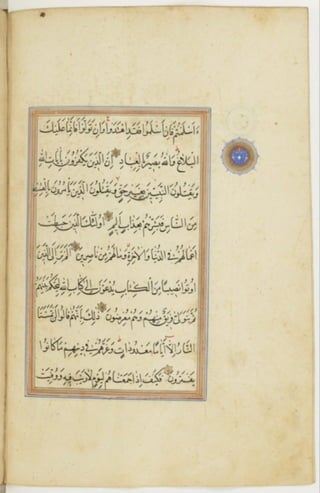 ءَاَسْلَمْتُمْ فَاِنْ اَسْلَمُوا فَقَدِ اهْتَدَوْا وَاِنْ تَوَلَّوْا فَاِنَّمَا عَلَيْكَ
الْبَلَاغُ وَاللّٰهُ بَصِيرٌ بِالْعِبَادِ اِنَّ الَّذِينَ يَكْفُرُونَ بِاٰيَاتِ اللّٰهِ
وَيَقْتُلُونَ النَّبِيّٖنَ بِغَيْرِ حَقٍّ وَيَقْتُلُونَ الَّذِينَ يَاْمُرُونَ بِالْقِسْطِ
مِنَ النَّاسِ فَبَشِّرْهُمْ بِعَذَابٍ اَلِيمٍ اُولٰئِكَ الَّذِينَ حَبِطَتْ
اَعْمَالُهُمْ فِي الدُّنْيَا وَالْاٰخِرَةِ وَمَا لَهُمْ مِنْ نَاصِرِينَ اَلَمْ تَرَ اِلَى الَّذِينَ
اُوتُوا نَصِيبًا مِنَ الْكِتَابِ يُدْعَوْنَ اِلٰى كِتَابِ اللّٰهِ لِيَحْكُمَ بَيْنَهُمْ
ثُمَّ يَتَوَلّٰى فَرِيقٌ مِنْهُمْ وَهُمْ مُعْرِضُونَ ذٰلِكَ بِاَنَّهُمْ قَالُوا لَنْ تَمَسَّنَا
النَّارُ اِلَّا اَيَّامًا مَعْدُودَاتٍ وَغَرَّهُمْ فِي دِينِهِمْ مَا كَانُوا
يَفْتَرُونَ فَكَيْفَ اِذَا جَمَعْنَاهُمْ لِيَوْمٍ لَا رَيْبَ فِيهِ وَوُفِّيَتْ